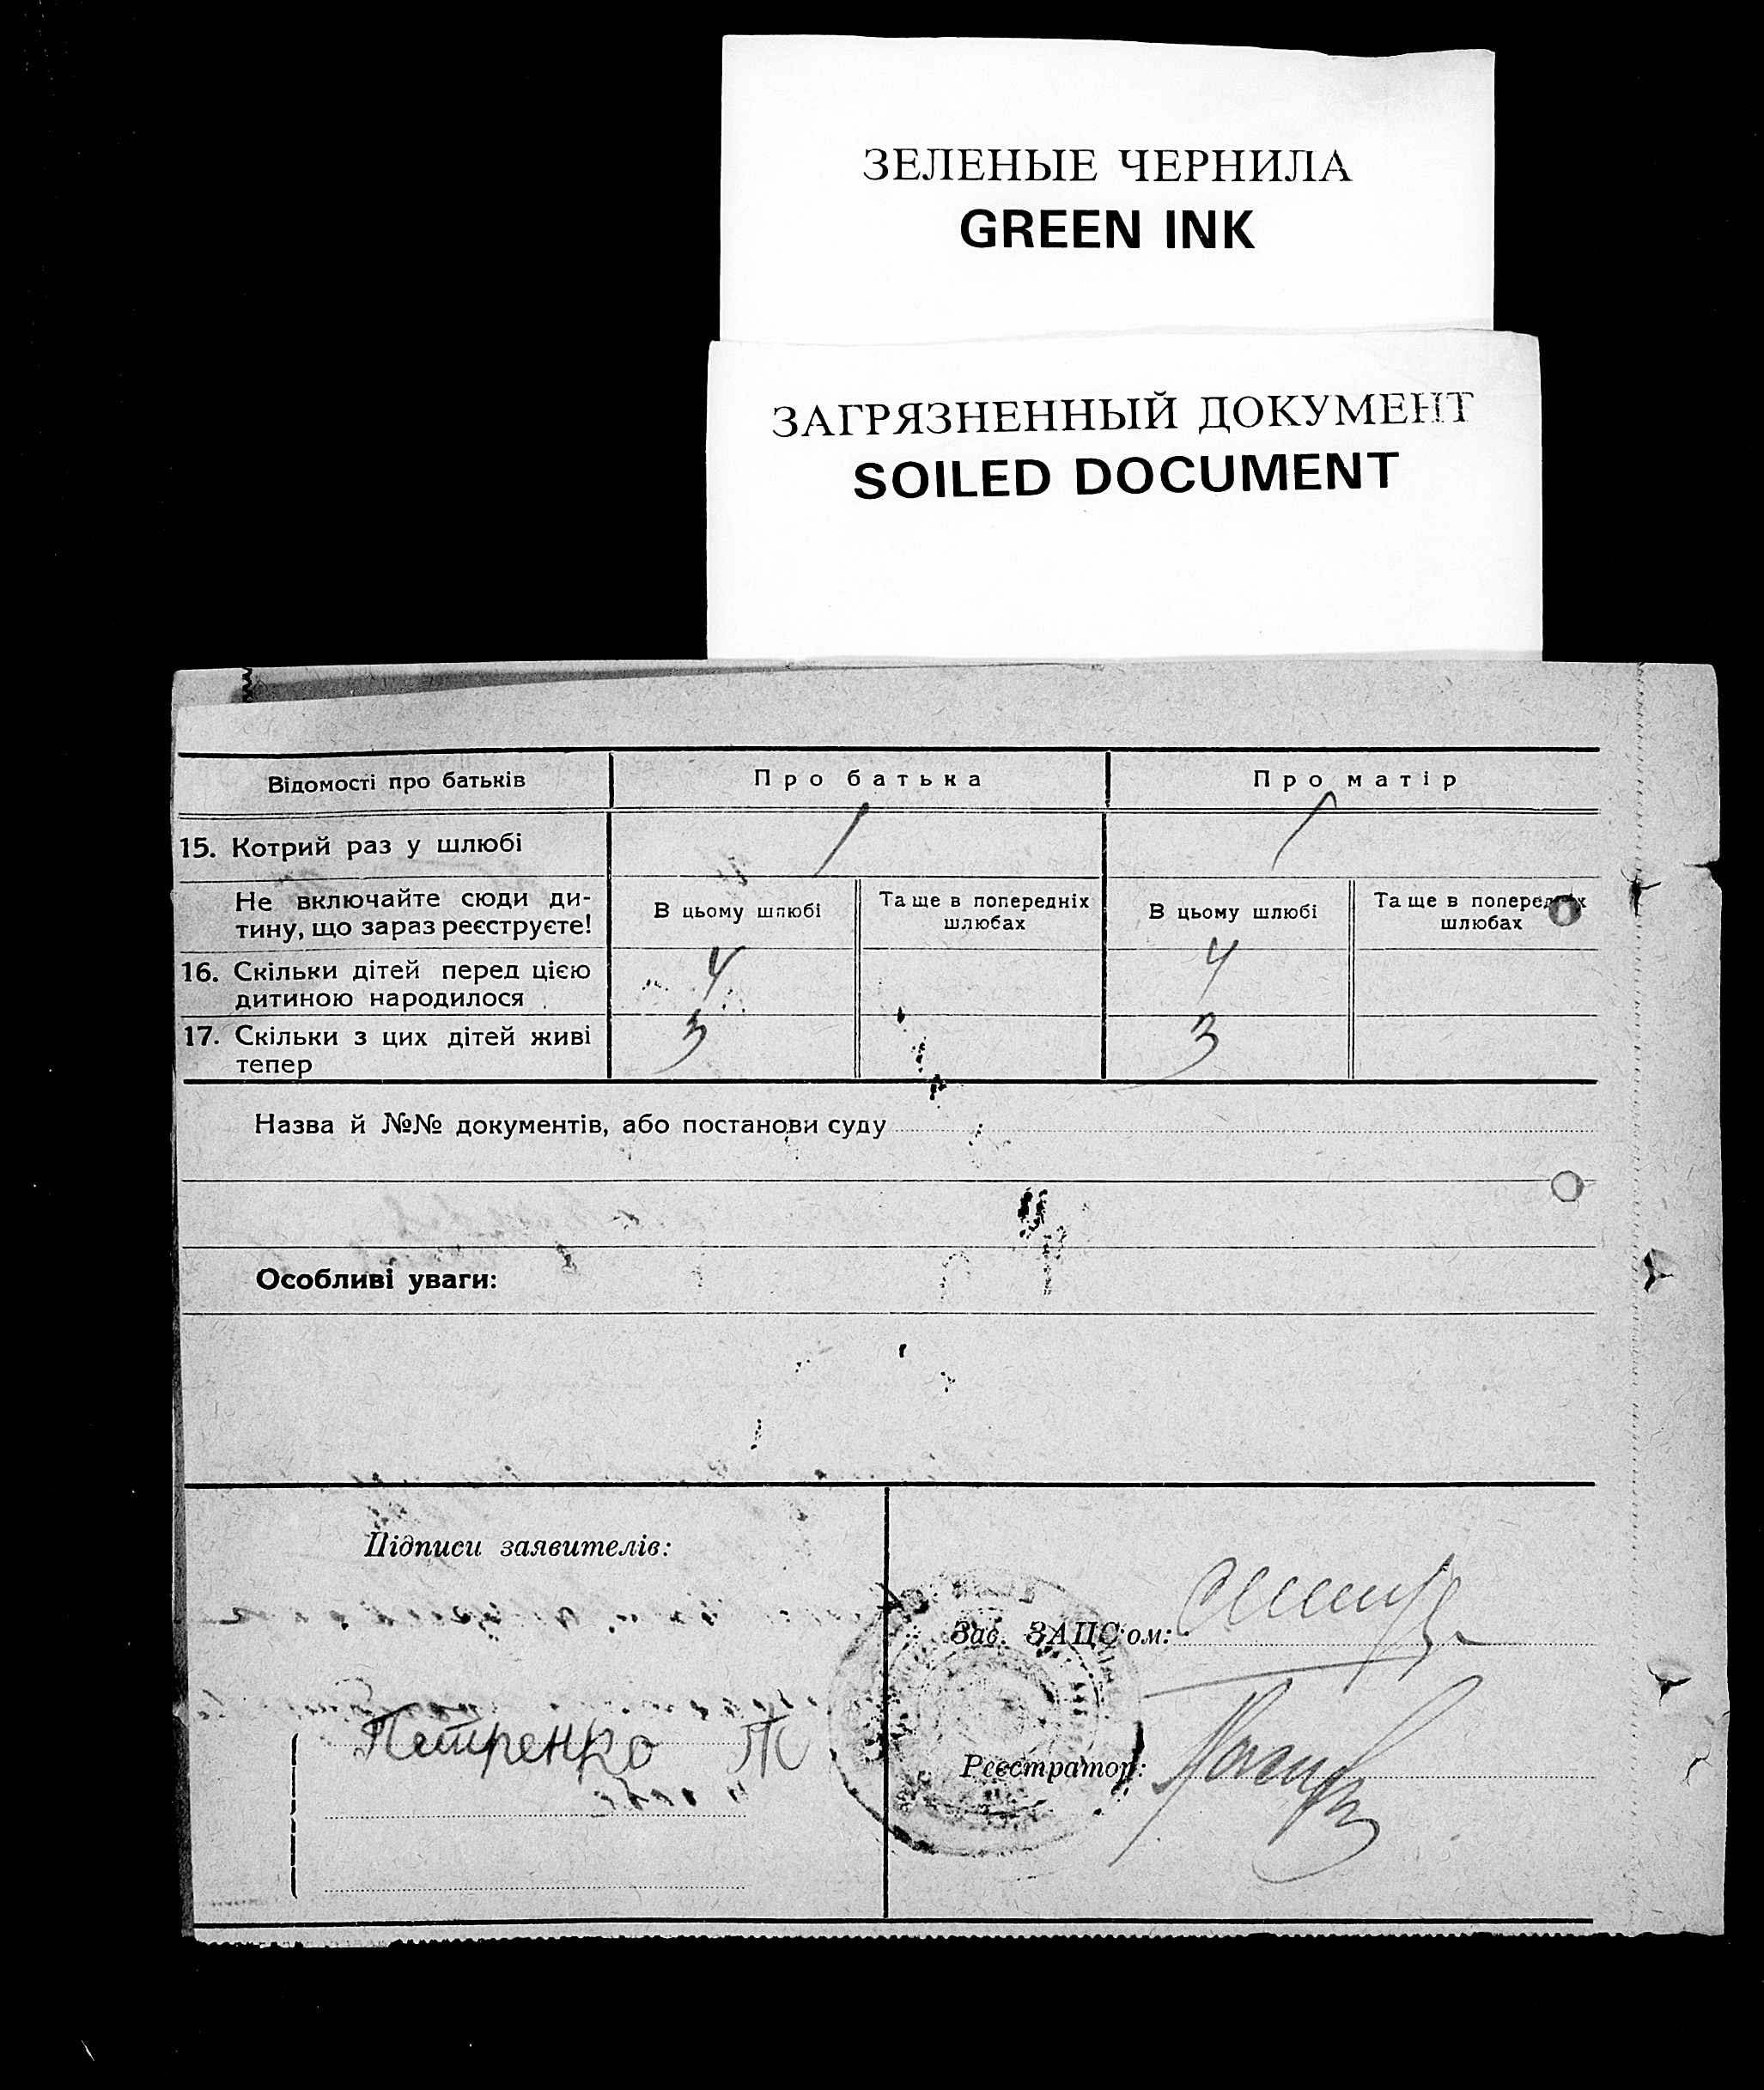 ЗЕЛЕНЫЕ ЧЕРНИЛА
GREEN INK
ЗАГРЯЗНЕННЫЙ ДОКУМЕНТ
SOILED DOCUMENT
Відомості про батьків Про батька Про матір
15. Котрий раз у шлюбі 1 1
Не включайте сюди ди-
тину, що зараз реєструєте!
В цьому шлюбі Та ще в попередніх
шлюбах
В цьому шлюбі Та ще в попередніх
шлюбах
16. Скільки дітей перед цією
дитиною народилося 4 4
17. Скільки з цих дітей живі
тепер 3 3
Назва й №№ документів, або постанови суду
Особливі уваги:
Підписи заявителів:
Петренко
Зав. ЗАЦС'ом:
Реєстратор: